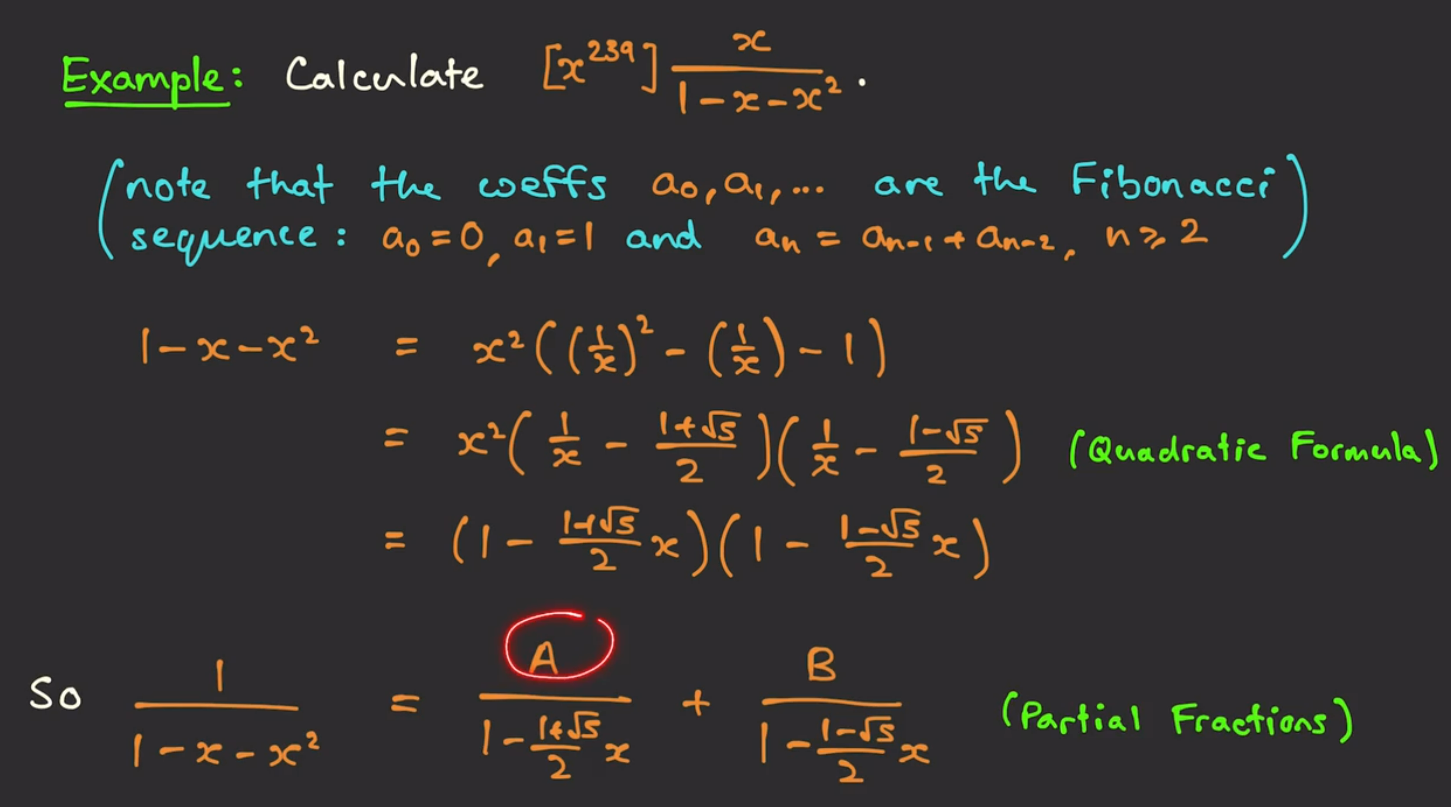 Example: Calculate [x^239] x/(1-x-x²).
(note that the coeffs a₀, a₁, ... are the Fibonacci
sequence: a₀=0, a₁=1 and aₙ = aₙ₋₁ + aₙ₋₂, n≥2)
1-x-x² = x²((1/x)² - (1/x) - 1)
= x²(1/x - (1+√5)/2)(1/x - (1-√5)/2) (Quadratic Formula)
= (1 - (1+√5)/2 x)(1 - (1-√5)/2 x)
So 1/(1-x-x²) = A/(1 - (1+√5)/2 x) + B/(1 - (1-√5)/2 x) (Partial Fractions)